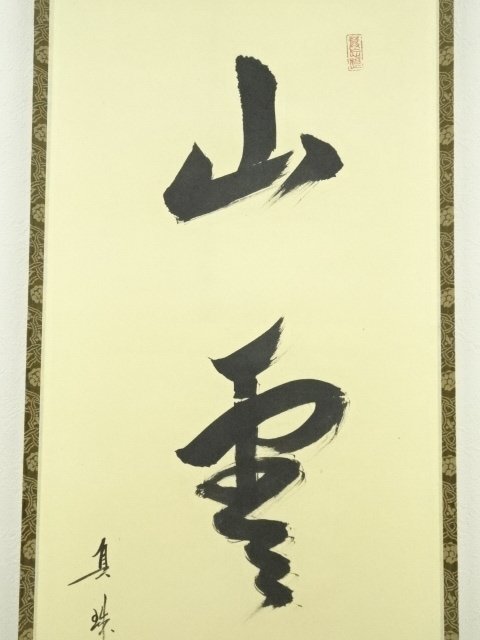 山雲
真珠